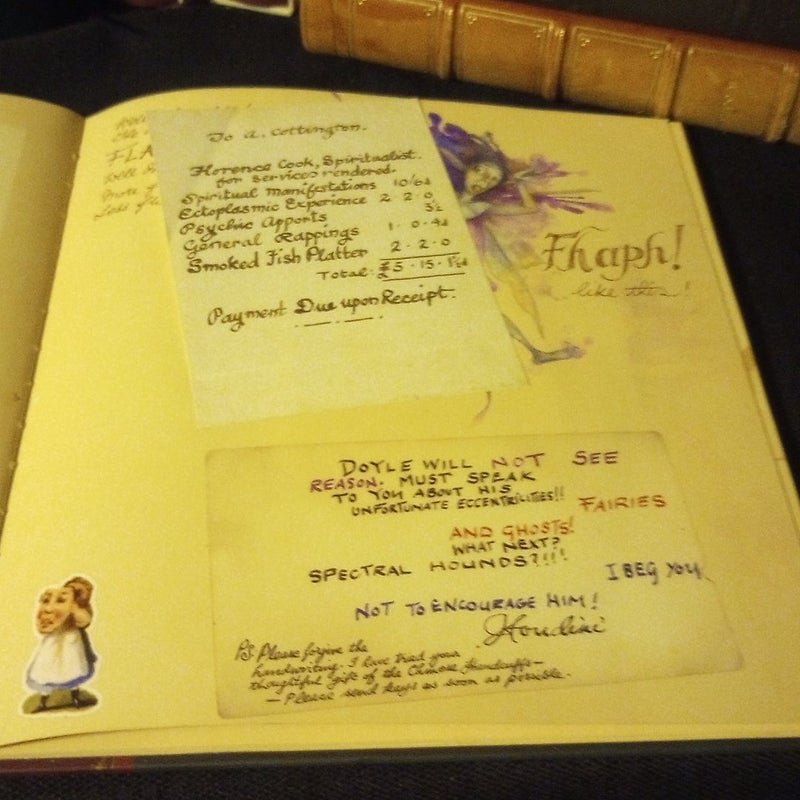 FLA
To A. Cottington.
Florence Cook, Spiritualist.
for services rendered.
Spiritual Manifestations 10/6d
Ectoplasmic Experience 2 2 0
Psychic Apports 3½
General Rappings 1 · 0 · 4d
Smoked Fish Platter 2 · 2 · 0
Total: £5 · 15 · 1½d
Payment Due upon Receipt.
Fhaph!
like this!
DOYLE WILL NOT SEE
REASON. MUST SPEAK
TO YOU ABOUT HIS
UNFORTUNATE ECCENTRILITIES!! FAIRIES
AND GHOSTS!
WHAT NEXT?
SPECTRAL HOUNDS?!!! I BEG YOU
NOT TO ENCOURAGE HIM!
Houdini
PS Please forgive the
handwriting. I have tried your
thoughtful gift of the Chinese Handcuffs—
— Please send keys as soon as possible.